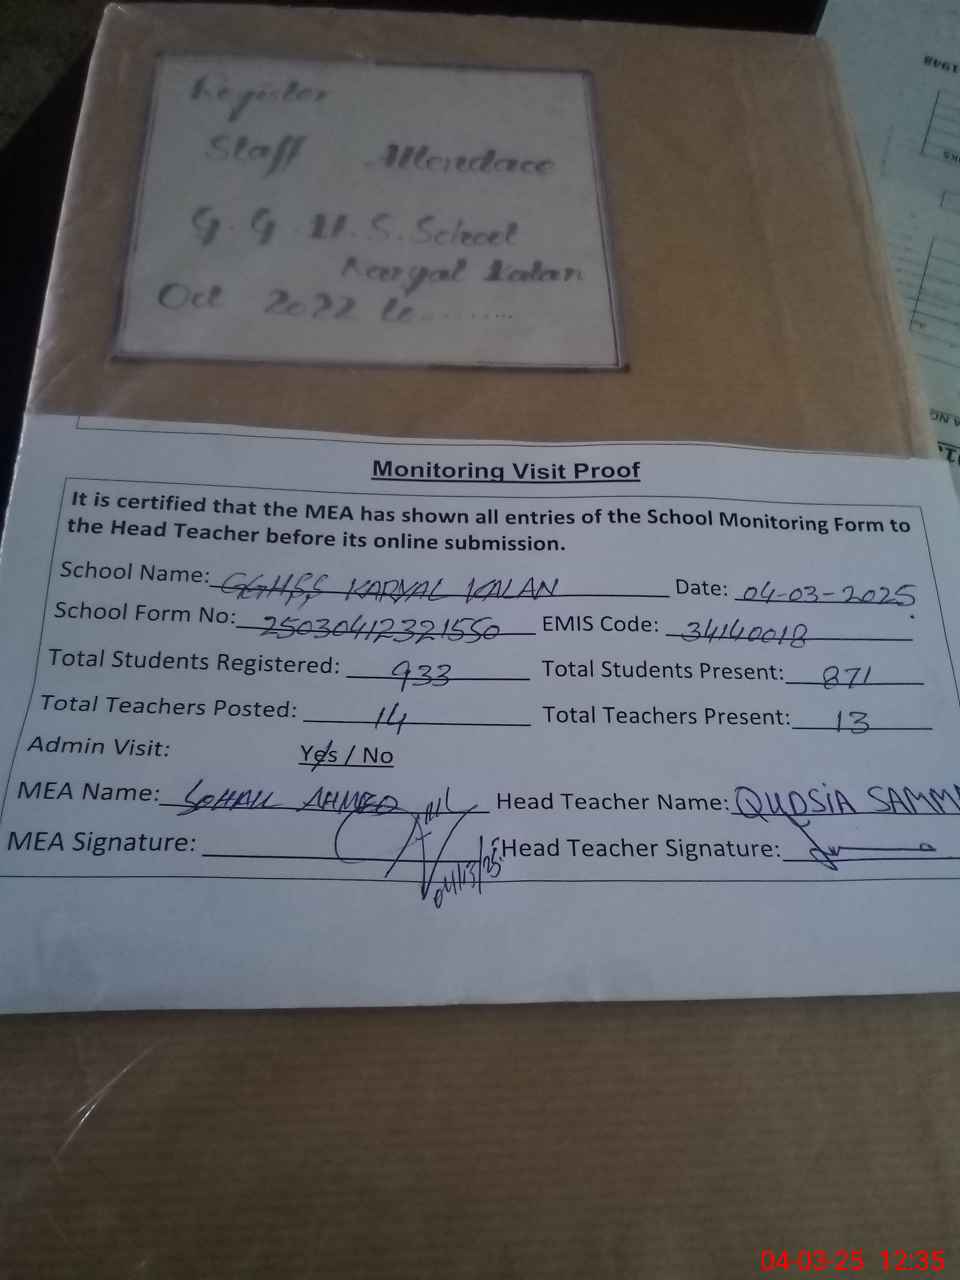 Register
Staff Attendace
G.G.H.S.School
Karyal Kalan
Oct 2022 to........
1948
Monitoring Visit Proof
It is certified that the MEA has shown all entries of the School Monitoring Form to
the Head Teacher before its online submission.
School Name: GGHSS KARYAL KALAN Date: 04-03-2025
School Form No: 25030412321550 EMIS Code: 34140018
Total Students Registered: 933 Total Students Present: 871
Total Teachers Posted: 14 Total Teachers Present: 13
Admin Visit: Yes / No
MEA Name: SOHAIL AHMED Head Teacher Name: QUDSIA SAMM
MEA Signature: Head Teacher Signature:
04/3/25
04-03-25 12:35